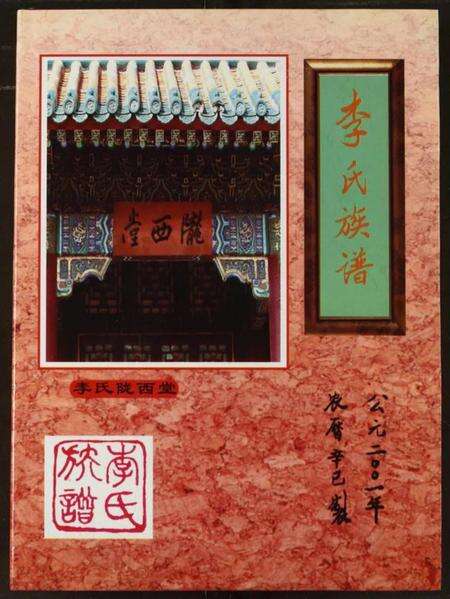 李氏族谱
隴西堂
李氏陇西堂
公元二00一年
农曆辛巳製
李氏
族譜